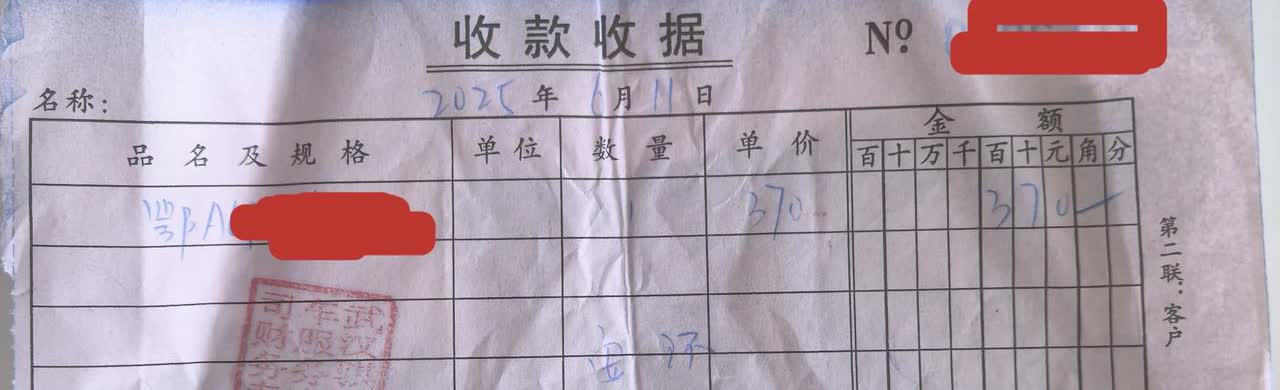 收款收据 Nº
名称： 2025年6月11日
品名及规格 单位 数量 单价 金额
百十万千百十元角分
鄂A 1 370 370—
第二联：客户